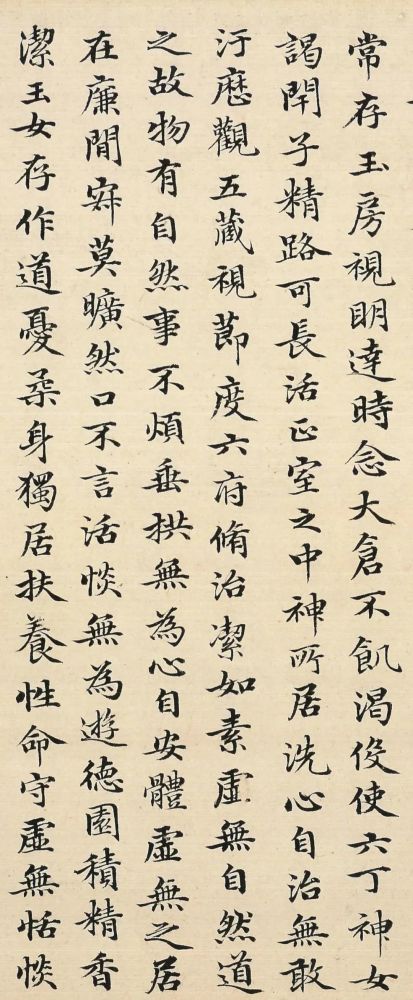 常存玉房視明達時念大倉不飢渴伇使六丁神女
謁閇子精路可長活正室之中神所居洗心自治無敢
汙歷觀五藏視節度六府脩治潔如素虛無自然道
之故物有自然事不煩垂拱無為心自安體虛無之居
在廉間寂莫曠然口不言活惔無為遊德園積精香
潔玉女存作道憂柔身獨居扶養性命守虛無恬惔